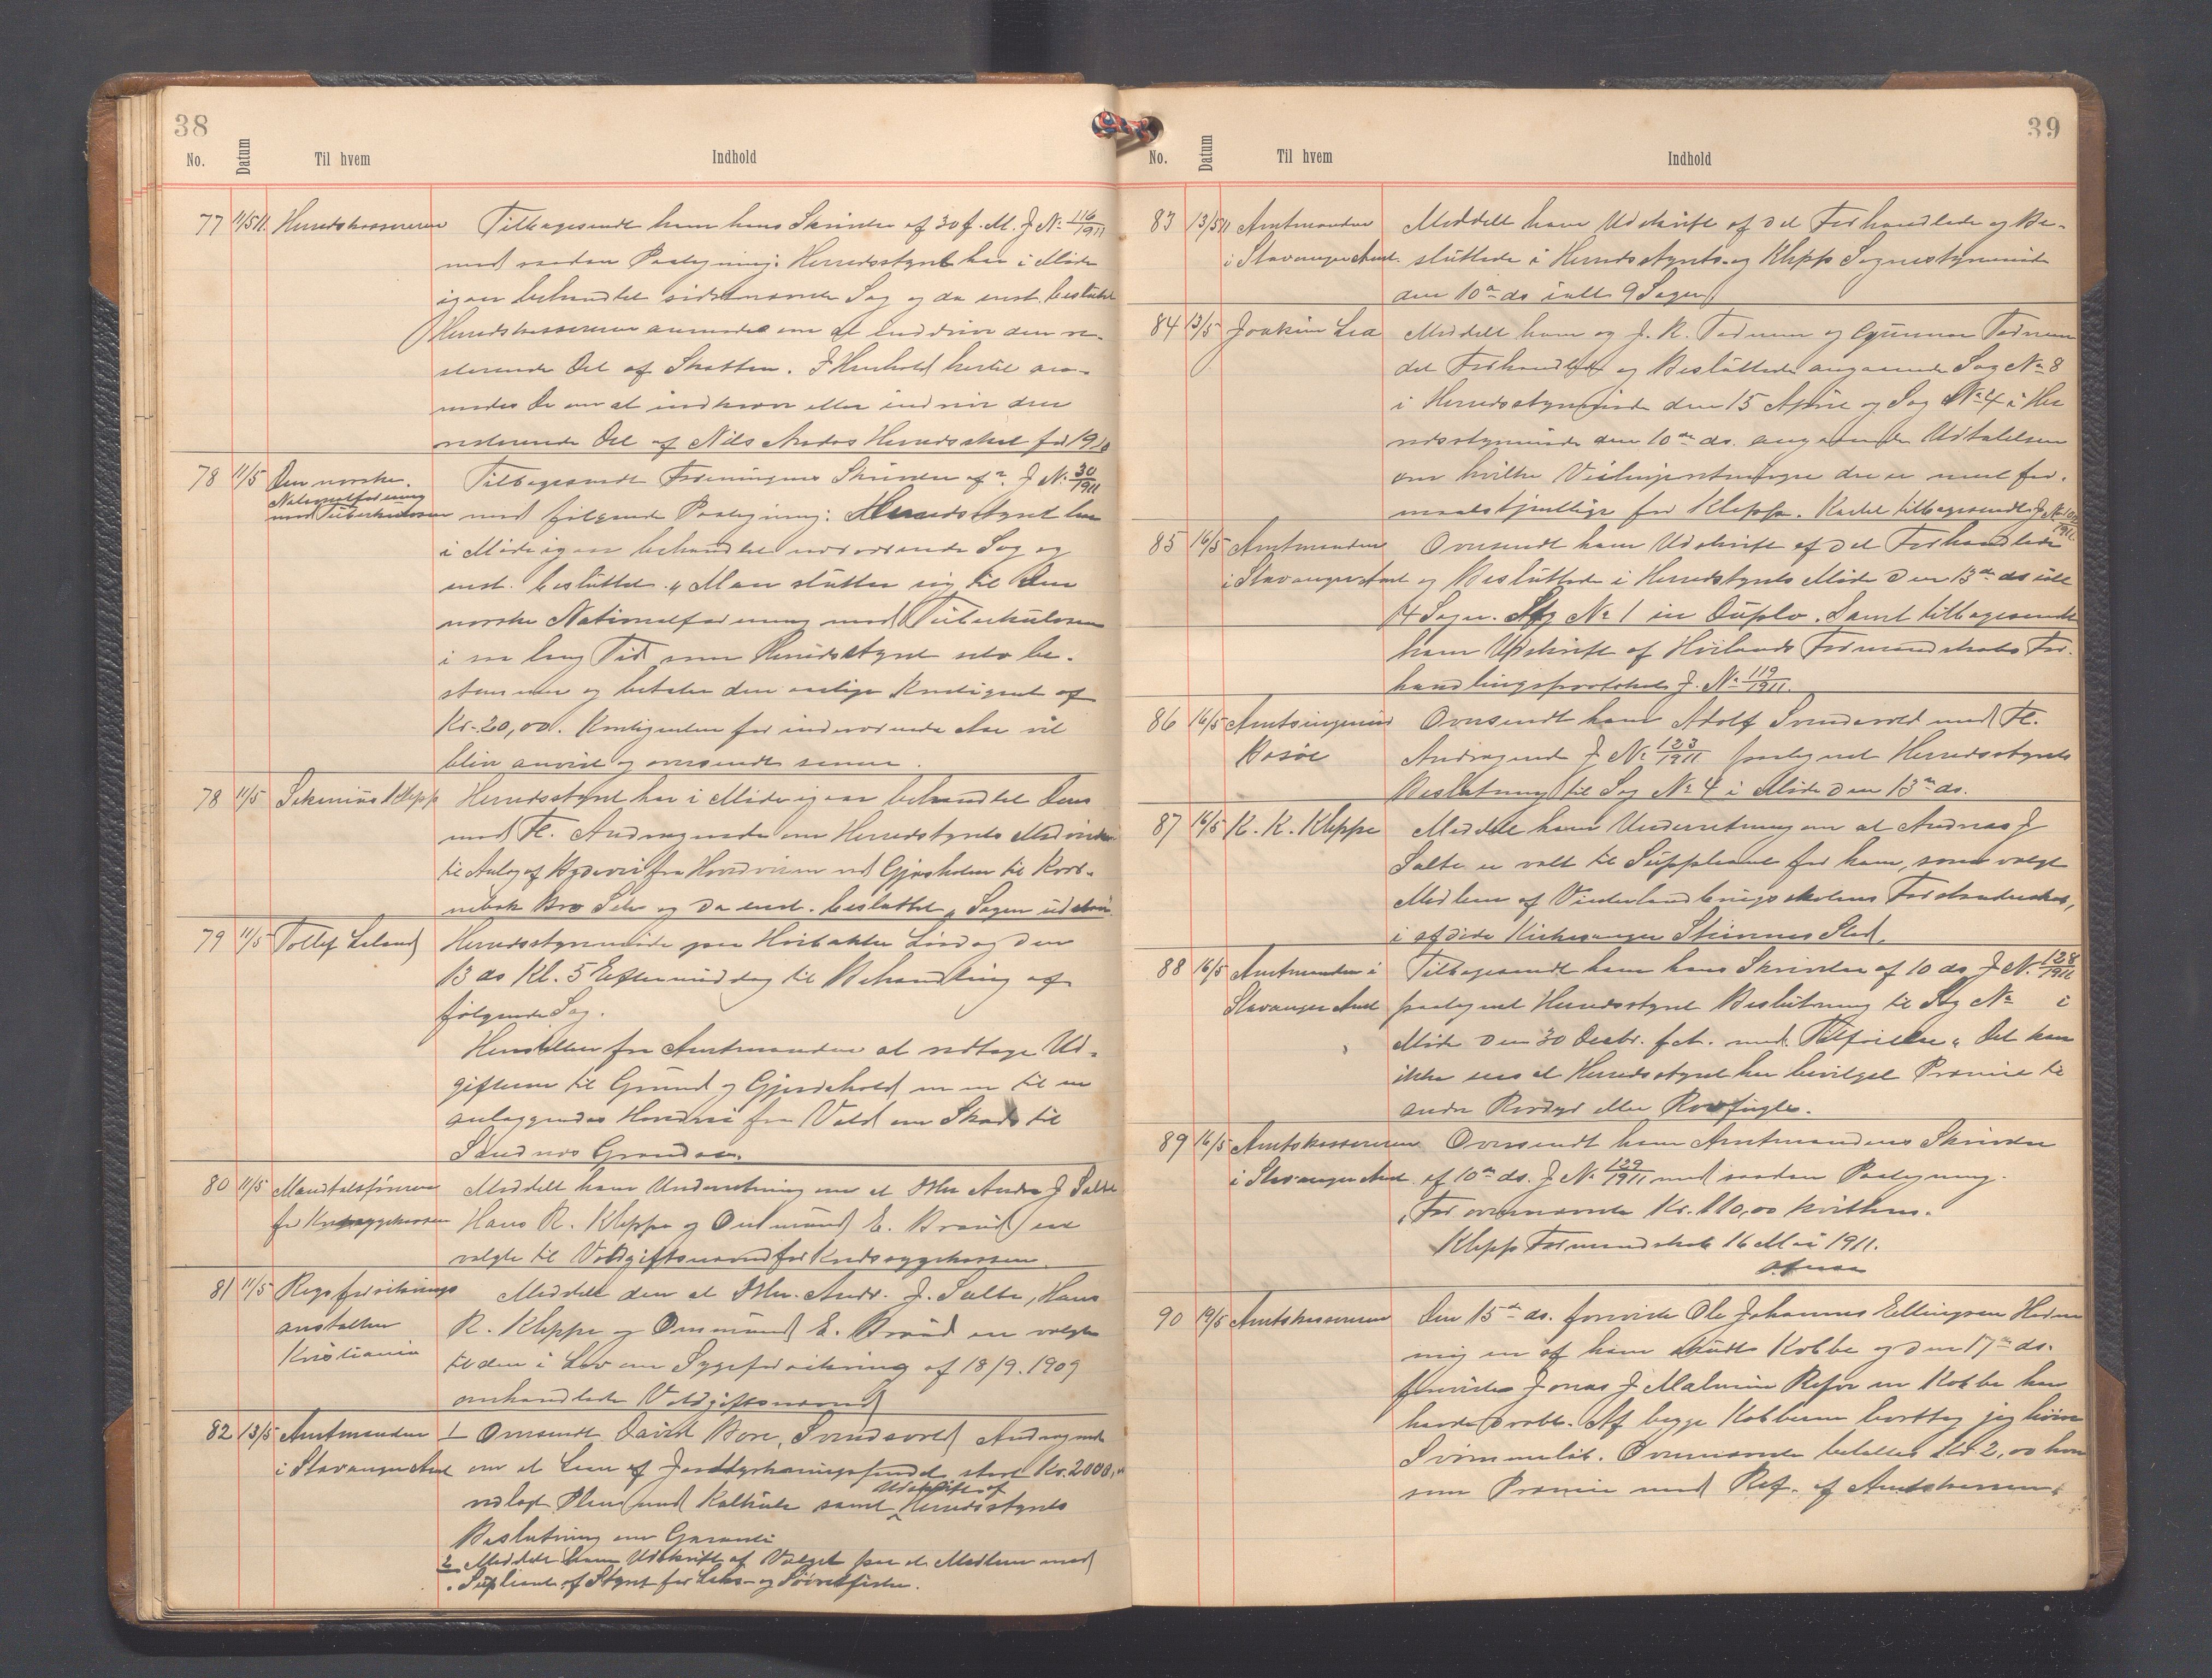 38
No. Datum Til hvem Indhold
77 11/5 11. Herredskassereren Tilbagesendt ham hans Skrivelse af 30 f. M. J. No. 116/1911
med saadan Paategning: Herredsstyret har i Møde
igaar behandlet sidstnævnte Sag og da enst. besluttet
Herredskassereren anmodes om at inddrive den re-
sterende Del af Skatten. I Henhold hertil an-
modes De om at indkræve eller inddrive den
resterende Del af Nils Herredsskat for 1910
78 11/5 Den norske Tilbagesendt Foreningens Skrivelse af J. No. 30/1911
Nationalforening
mod Tuberkulosen med følgende Paategning: Herredsstyret har
i Møde igaar behandlet nærværende Sag og
enst. besluttet: „Man slutter sig til Den
norske Nationalforening mod Tuberkulosen
i saa lang Tid som Herredsstyret selv be-
stemmer og betaler den aarlige Kontigent af
Kr. 20,00. Kontigenten for indeværende Aar vil
blive anvist og oversendt senere.
78 11/5 Klepp Herredsstyret har i Møde igaar behandlet Deres
med Fl. Andragende om Herredsstyrets Medvirken
til Anlæg af Bygdevei fra Hovedveien ved til
Bro Sele og da enst. besluttet „Sagen
79 11/5 Tollef Leland Herredsstyremøde paa Lørdag den
13 ds Kl. 5 Eftermiddag til Behandling af
følgende Sag.
Henstillen fra Amtmanden at vedtage Ud-
gifterne til Grund og Gjerdehold m. m. til en
anlæggendes Hovedvei fra til
Sandnes Grændse.
80 11/5 Mandtalsføreren Meddelt ham Underretning om at Hr. Andr. J. Salte
for Kredssygekassen Hans R. Kleppe og Omund E. Braud er
valgte til Voldgiftsnævnd for Kredssygekassen.
81 11/5 Rigsforsikrings Meddelt den at Hr. Andr. J. Salte, Hans
anstalten R. Kleppe og Ommund E. Braud er valgte
Kristiania til den i Lov om Sygeforsikring af 18/9. 1909
omhandlede Voldgiftsnævnd
82 13/5 Amtmanden 1 Oversendt David Bore, Andragende
i Stavanger Amt om et Laan af Jorddyrkningsfondet stort Kr. 2000,00
vedlagt Plan med Kalkule samt Udskrift af Herredsstyrets
Beslutning om Garanti
2 Meddelt ham Udskrift af Valget paa et Medlem med
Supleant af Styret for Laks- og Sjøørretfiske.
39
No. Datum Til hvem Indhold
83 13/5 11 Amtmanden Meddelt ham Udskrift af det Forhandlede og Be-
i Stavanger Amt. sluttede i Herredsstyrets- og Klepp Sognestyremøde
den 10de ds ialt 9 Sager
84 13/5 Joakim Lea Meddelt ham og J. R. Tednem og Gunnar Tednem
det Forhandlede og Besluttede angaaende Sag No 8
i Herredsstyremøde den 15 April og Sag No 4 i Her
redsstyremøde den 10de ds. angaaende Udtalelsen
om hvilke der er mest for-
maalstjenlige for Kleppe. Kartet tilbagesendt J. No
85 16/5 Amtmanden Oversendt ham Udskrift af det Forhandlede
i Stavanger Amt og Besluttede i Herredsstyrets Møde den 13de ds ialt
4 Sager. Sag No 1 in Duplo. Samt tilbagesendt
ham Udskrift af Høilands Formandskabs For-
handlingsprotokol J. No 119/1911.
86 16/5 Amtsingeniør Oversendt ham Adolf med Fl.
Bosøe Andragende J. No 123/1911 paategnet Herredsstyrets
Beslutning til Sag No 4 i Møde den 13de ds.
87 16/5 R. R. Kleppe Meddelt ham Underretning om at Andreas J
Salte er valt til Suppleant for ham, som valgt
Medlem af Vinterlandbrugsskolens Forstanderskab,
i afdøde Kirkesanger Stinnes Sted.
88 16/5 Amtmanden i Tilbagesendt ham hans Skrivelse af 10 ds. J. No. 128/1911
Stavanger Amt paategnet Herredsstyret Beslutning til Sag No i
Møde den 30 Decbr. f. A. med Tilføielse „Det kan
ikke sees at Herredsstyret har bevilget Præmie til
andre Rovdyr eller Rovfugler.
89 16/5 Amtskassereren Oversendt ham Amtmandens Skrivelse
i Stavanger Amt af 10de ds. J. No 129/1911 med saadan Paategning.
„For overnævnte Kr. 110,00 kvitteres.
Klepp Formandskab 16 Mai 1911.
90 19/5 Amtskassereren Den 15de ds. foreviste Ole Johannes Ellingsen
mig en af ham skudt Kobbe og den 17de ds.
foreviste Jonas J. Malmin Refve en Kobbe han
havde dræbt. Af begge Kobberne borttog jeg høire
Svømmelab. Overnævnte betaltes Kr. 2,00 hver
som Præmie med Ref. af Amtskassen.